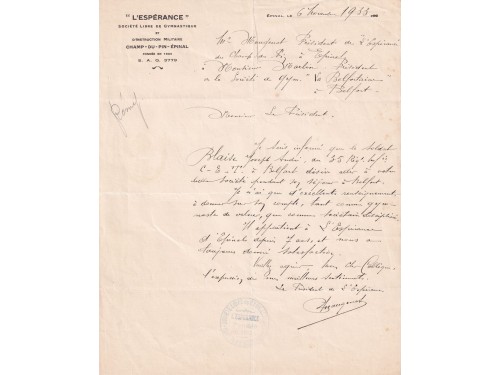 "L'ESPÉRANCE"
SOCIÉTÉ LIBRE DE GYMNASTIQUE
ET
D'INSTRUCTION MILITAIRE
CHAMP-DU-PIN-ÉPINAL
S. A. G. 2770
EPINAL LE 6 1933
Mr Président de l'Espérance
au Champ du Pin à Epinal,
à Monsieur Président
a la Société de Gym. La Belfortaine
à Belfort
Monsieur Le Président.
Je suis informé que le soldat
Blaise Joseph André, au 35 Rég.
C-E-T. à Belfort désire à votre
société pendant son séjour à Belfort.
Je n'ai que d'excellents renseignements
à donner sur son compte, tant comme gym-
naste de valeur, que comme sociétaire discipliné,
Il appartient à L'Espérance
d'Epinal depuis 7 ans, et nous a
toujours donné satisfaction.
Veuillez agréer cher Collègue
l'expression de mes meilleurs sentiments.
Le Président de l'Espérance